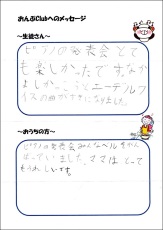 おんぷClubへのメッセージ
～生徒さん～
ピアノの発表会とて
も楽しかったです。なか
よしかっことエーデルワ
イスの曲がすきになりました。
～おうちの方～
ピアノの発表会みんなベルをがん
ばっていました。ママはとって
もうれしいです。